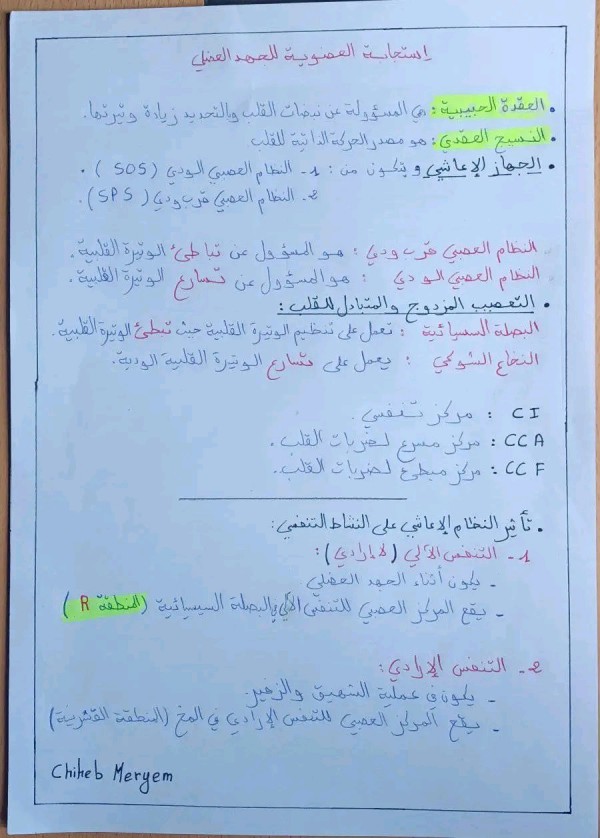 إستجابة العضوية للجهد العضلي
• العقدة الجيبية: هي المسؤولة عن نبضات القلب وبالتحديد زيادة وتيرتها.
• النسيج العقدي: هو مصدر الحركة الذاتية للقلب
• الجهاز الإعاشي ويتكون من: 1- النظام العصبي الودي (SOS).
2- النظام العصبي قرب ودي (SPS).
النظام العصبي قرب ودي: هو المسؤول عن تباطئ الوتيرة القلبية.
النظام العصبي الودي: هو المسؤول عن تسارع الوتيرة القلبية.
• التعصيب المزدوج والمتبادل للقلب:
البصلة السيسائية: تعمل على تنظيم الوتيرة القلبية حيث تبطئ الوتيرة القلبية.
النخاع الشوكي: يعمل على تسارع الوتيرة القلبية الودية.
CI: مركز تنفسي.
CCA: مركز مسرع لضربات القلب.
CCF: مركز مبطئ لضربات القلب.
• تأثير النظام الإعاشي على النشاط التنفسي:
1- التنفس الآلي (لاإرادي):
- يكون أثناء الجهد العضلي
- يقع المركز العصبي للتنفس الآلي بالبصلة السيسيائية (المنطقة R)
2- التنفس الإرادي:
- يكون في عملية الشهيق والزفير.
- يقع المركز العصبي للتنفس الإرادي في المخ (المنطقة القشرية)
Chiheb Meryem